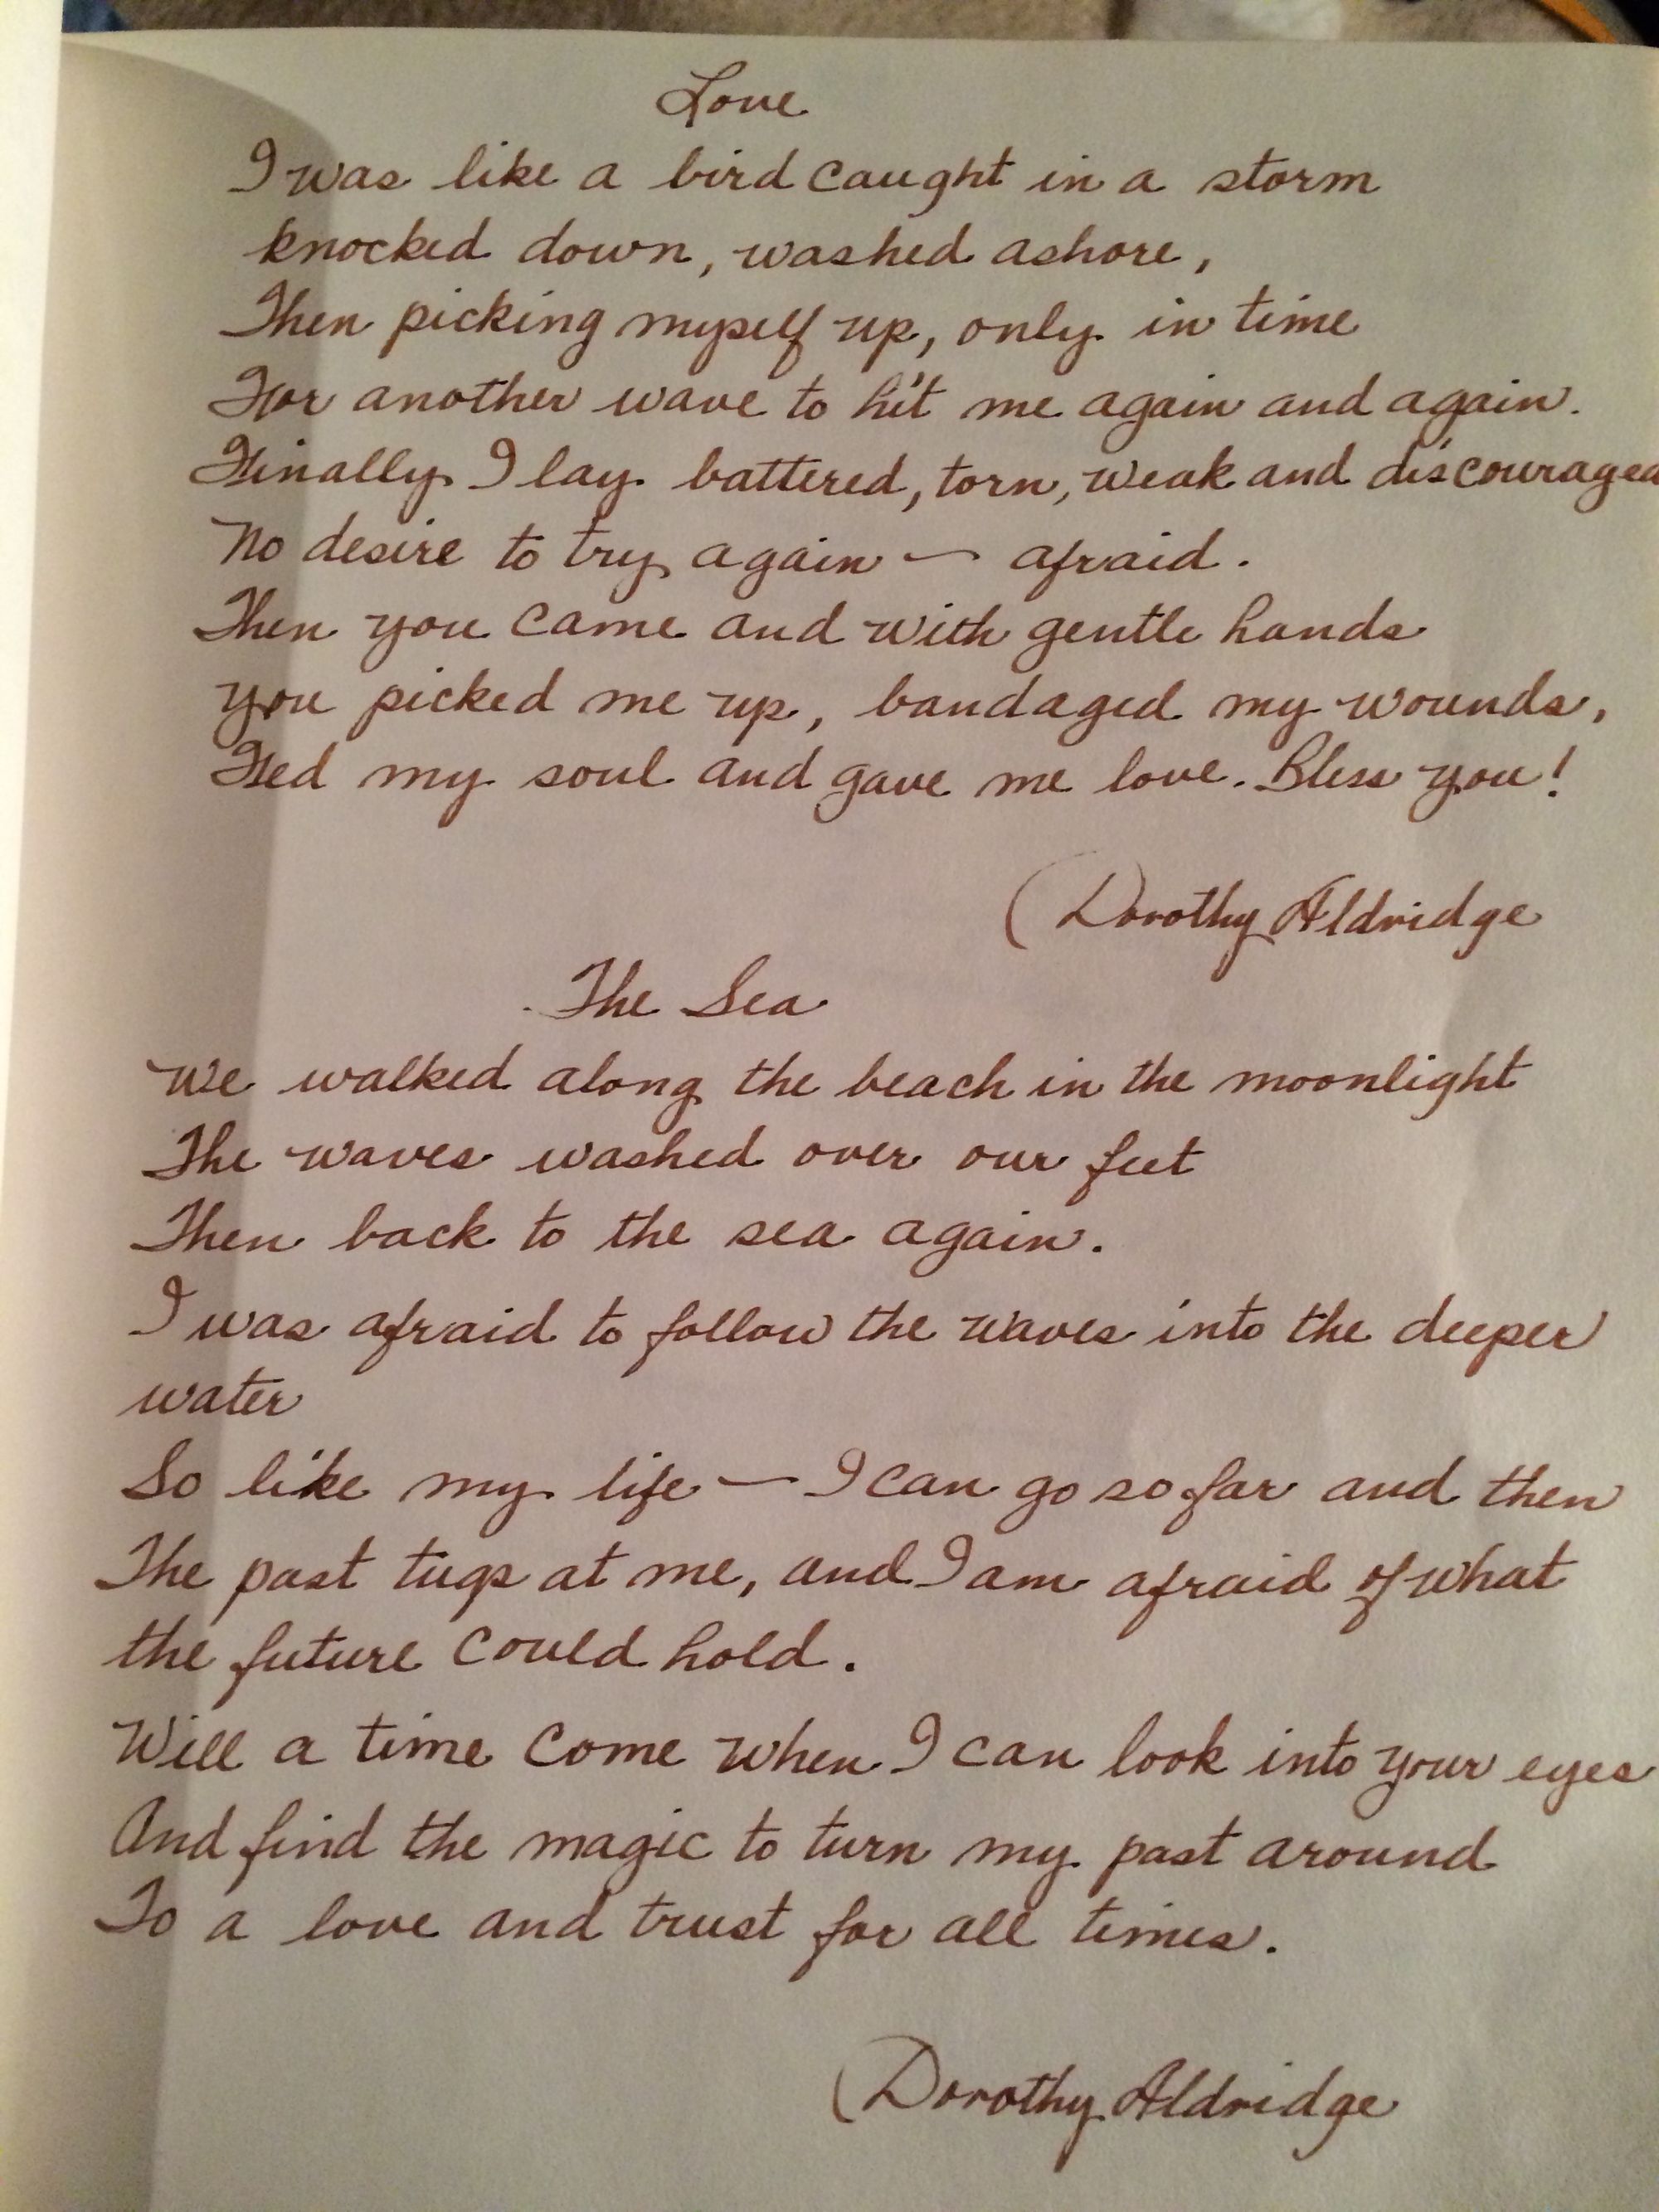 Love
I was like a bird caught in a storm
knocked down, washed ashore,
Then picking myself up, only in time
For another wave to hit me again and again.
Finally I lay battered, torn, weak and discouraged
No desire to try again — afraid.
Then you came and with gentle hands
you picked me up, bandaged my wounds,
Fed my soul and gave me love. Bless you!
(Dorothy Aldridge
The Sea
We walked along the beach in the moonlight
The waves washed over our feet
Then back to the sea again.
I was afraid to follow the waves into the deeper
water
So like my life — I can go so far and then
The past tugs at me, and I am afraid of what
the future could hold.
Will a time come when I can look into your eyes
And find the magic to turn my past around
To a love and trust for all times.
(Dorothy Aldridge